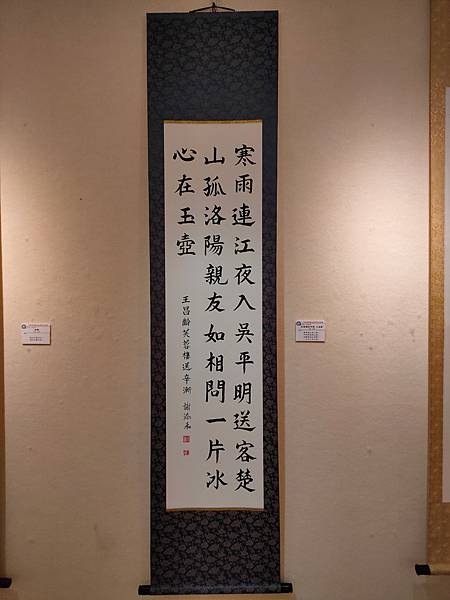 寒雨連江夜入吳平明送客楚
山孤洛陽親友如相問一片冰
心在玉壺
王昌齡芙蓉樓送辛漸 謝添禾